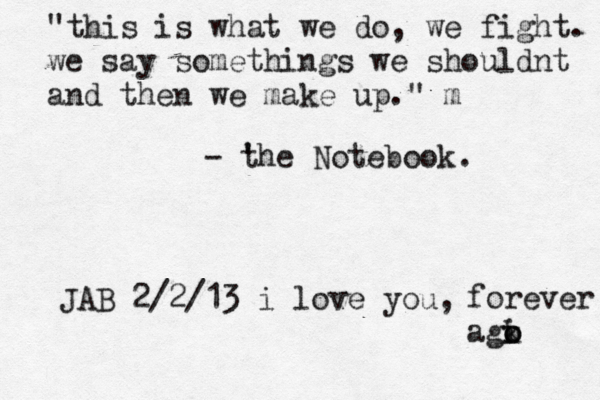 "this is what we do, we fight.
we say somethings we shouldnt
and then we make up." m
- the Notebook.
JAB 2/2/13 i love you, forever